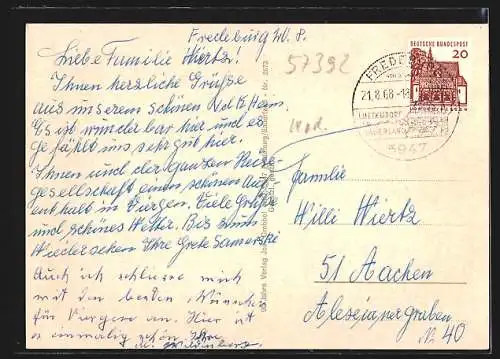 Fredeburg
57392
Liebe Familie Wiertz!
Ihnen herzliche Grüße
aus unserem schönen Ndb Heim.
Es ist wunderbar hier und es
gefählt uns sehr gut hier.
Ihnen und der ganzen Reise-
gesellschaft einen schönen Auf-
enthalt in Vierzen. Viele Grüße
und schönes Wetter. Bis zum
Wiedersehen Ihre Grete
Auch ich schliesse mich
mit den besten Wünschen
für an. Hier ist
es einmalig schön. Ihre
DEUTSCHE BUNDESPOST
20
FREDEBURG
21.8.68
LUFTKURORT
SAUERLAND
5947
Familie
Willi Wiertz
51 Aachen
Alexianergraben
40